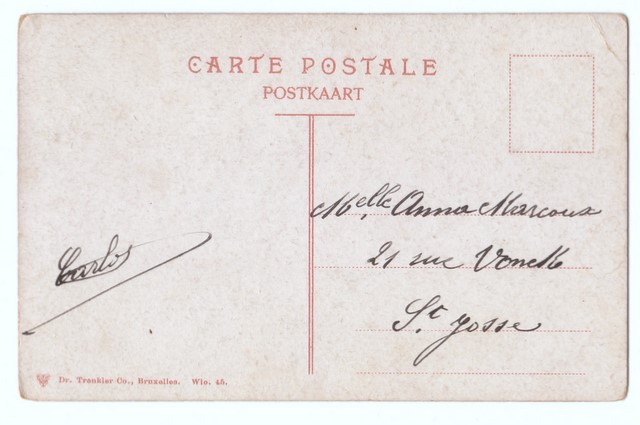 CARTE POSTALE
POSTKAART
Melle Anna Marcoux
21 rue Vonck
St. Josse
Carlos
Dr. Trenkler Co., Bruxelles. Wie. 45.